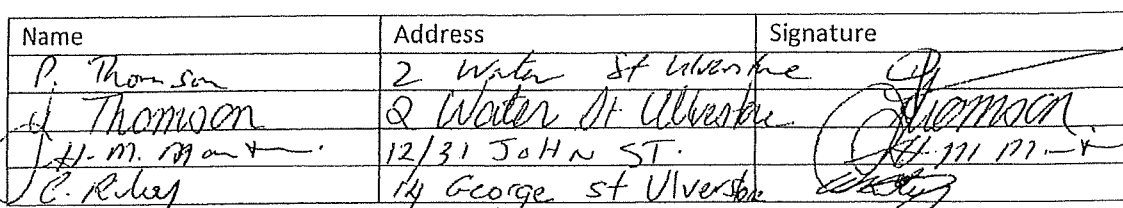 Name Address Signature
P. Thomson 2 Water St Ulverstone
J Thomson 2 Water St Ulverstone Thomson
H. M. 12/31 JOHN ST. H. M.
C. Riley 14 George st Ulverstone